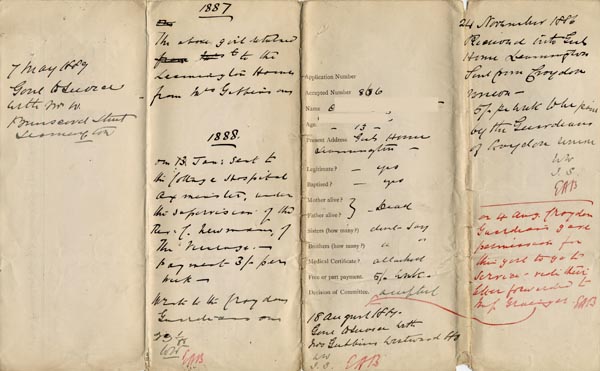 7 May 1889
Gone to Service
with Mrs W.
Brunswick Street
Leamington
1887
The above girl returned
to the
Leamington Home
from Mrs Gubbins on
1888.
on 13. Jan: sent to
the Cottage Hospital
Axminster, under
the supervision of the
Rev. C. Newman, of
The Vicarage. -
Payment 3/- per
week -
Wrote to the Croydon
Guardians on
WW
EAB
Application Number
Accepted Number 836
Name E
Age. - 13 -
Present Address Girls Home
Leamington -
Legitimate? - yes
Baptised? - yes
Mother alive? } Dead
Father alive?
Sisters (how many?) don't say
Brothers (how many?) "
Medical Certificate? attached
Free or part payment. 5/- week -
Decision of Committee. accepted
18 August 1887.
Gone to Service with
Mrs Gubbins Westwood
WW
I. S. EAB
24 November 1886
Received into Girls
Home Leamington
Sent from Croydon
Union -
5/- per week to be paid
by the Guardians
of Croydon Union
WW
I. S.
EAB
on 4 Aug. Croydon
Guardians gave
permission for
this girl to go to
service - vide their
letter forwarded to
EAB